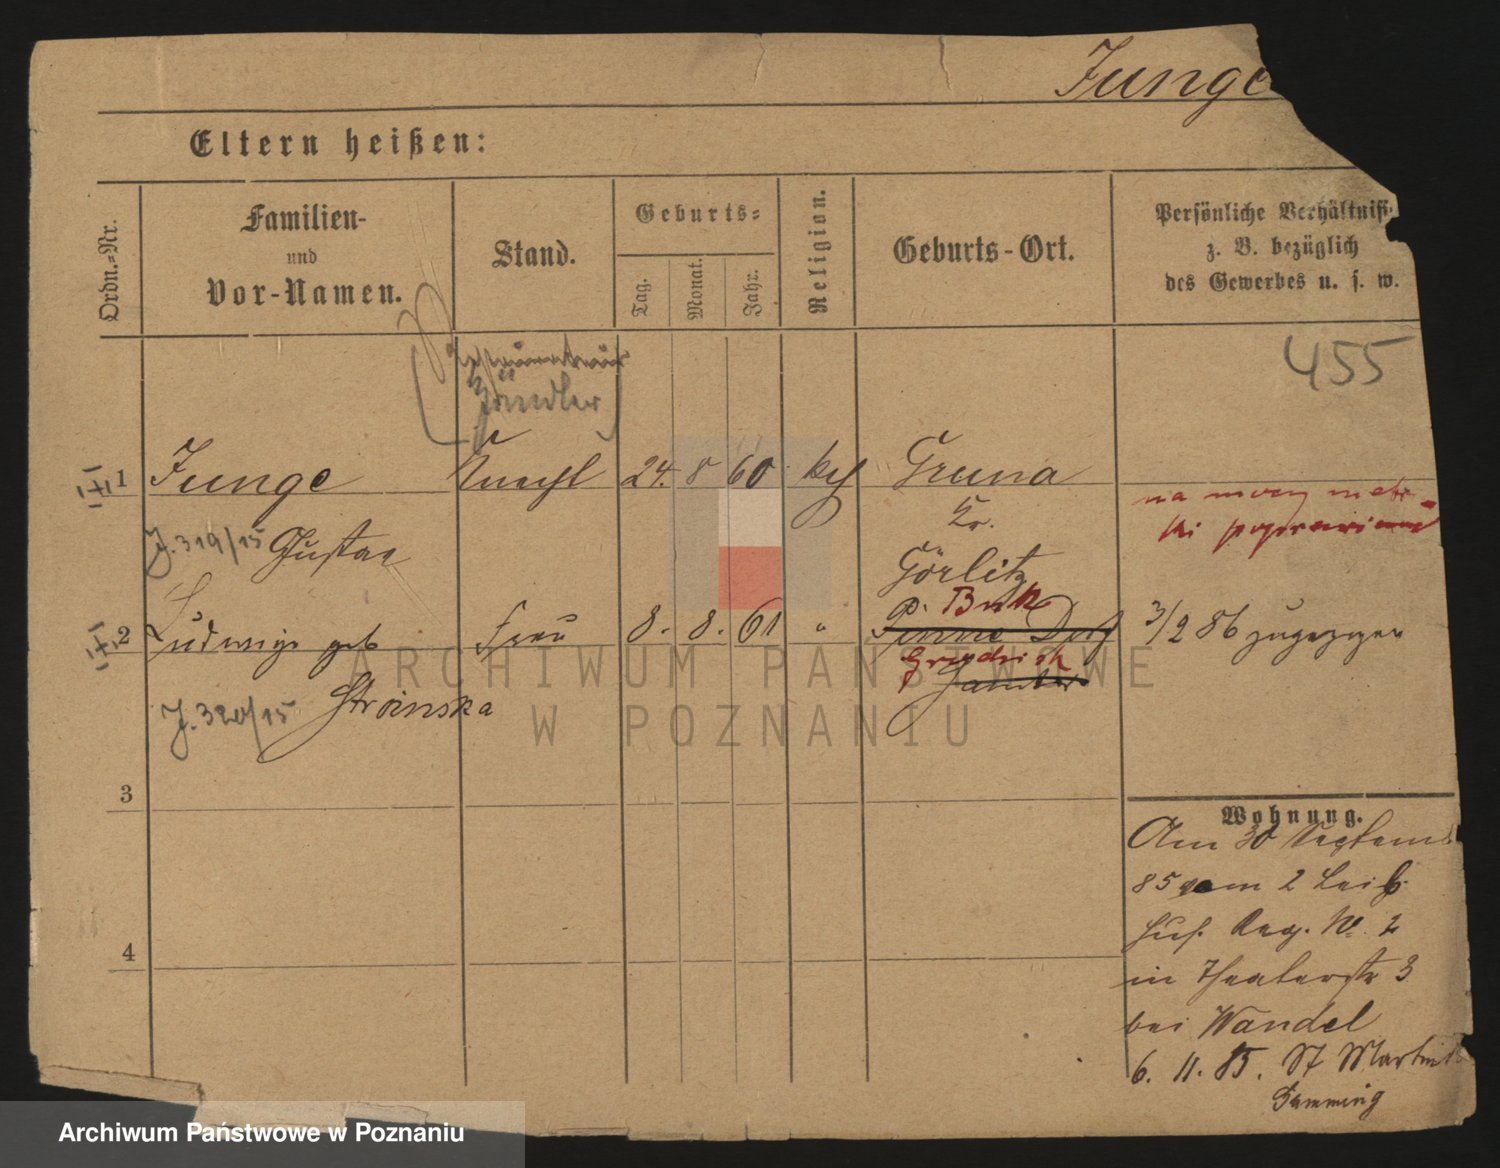 Junge
Eltern heißen:
Ordn.=Nr.
Familien-
und
Vor-Namen.
Stand.
Geburts=
Tag.
Monat.
Jahr.
Religion.
Geburts-Ort.
Persönliche Verhältniss
z. B. bezüglich
des Gewerbes u. s. w.
455
Restaurateur
Händler
1 Junge Knecht 24. 8 60 kth Gruna
Kr.
J. 319/15 Gustav Görlitz
na mocy metr-
ki poprawiono
p. Buk
2 Ludwige geb Frau 8. 8. 61 " Dorf
3/2 86 zugezogen
J. 320/15 Stroinska
3
4
Wohnung.
Am 30 Septemb
85 vom 2 Leib
Hus. Reg. No. 2
in Theaterstr 3
bei Wandel
6. 11. 85. St Martin
Damming
ARCHIWUM PAŃSTWOWE
W POZNANIU
Archiwum Państwowe w Poznaniu